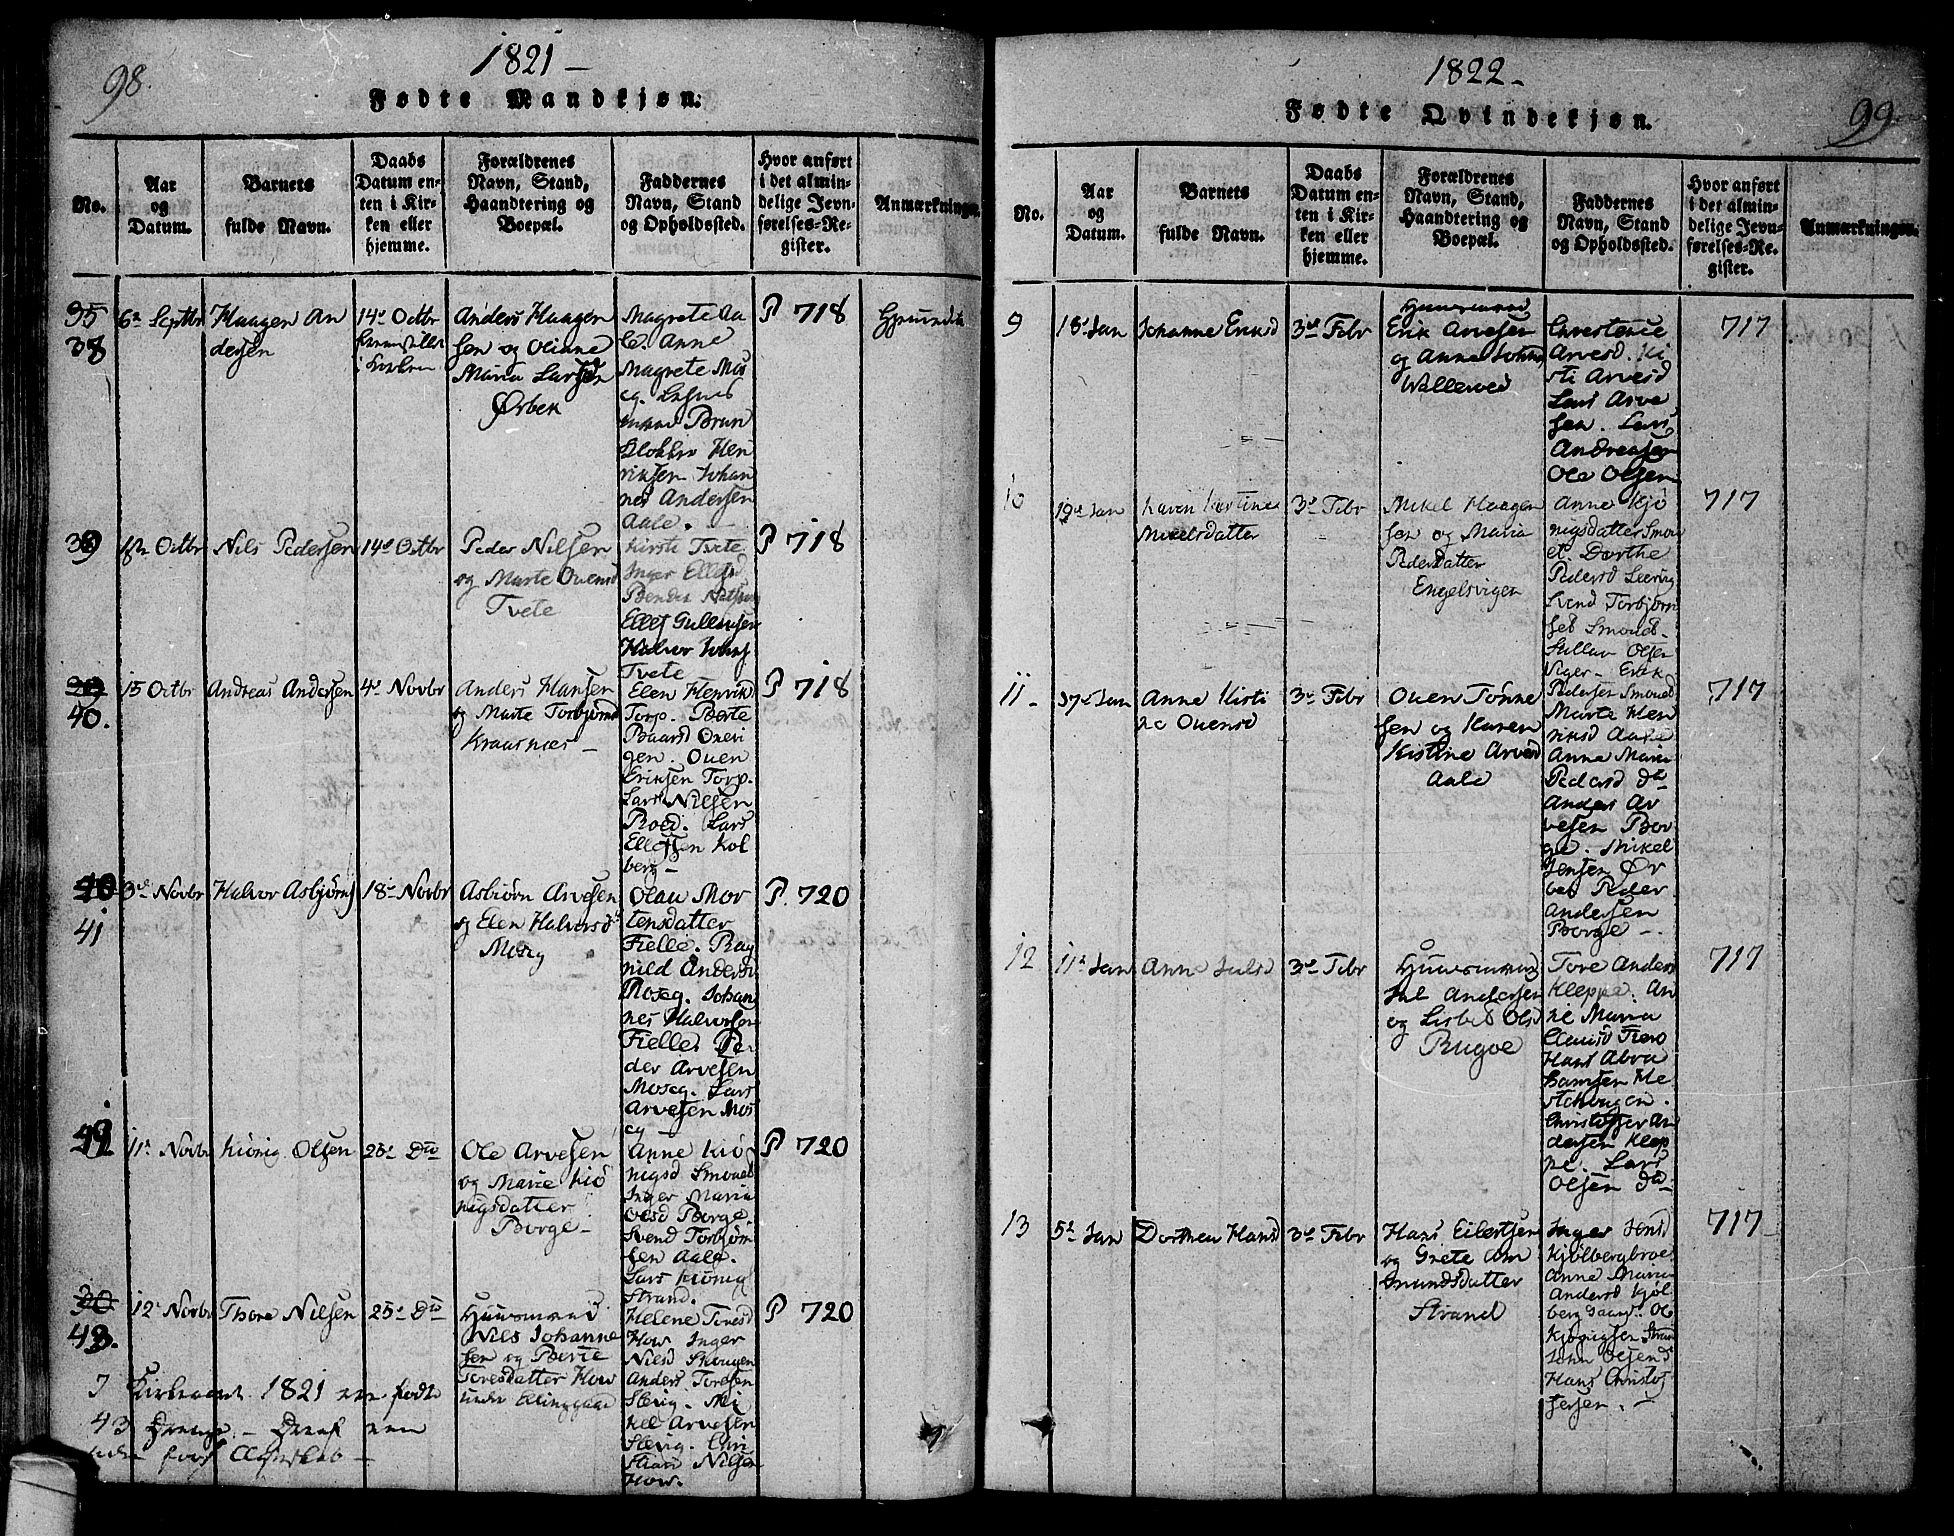 98.
1821 —
Fødte Mandkjøn.
No.
Aar
og
Datum.
Barnets
fulde Navn.
Daabs
Datum en-
ten i Kir-
ken eller
hjemme.
Forældrenes
Navn, Stand,
Haandtering og
Boepæl.
Faddernes
Navn, Stand
og Opholdssted.
Hvor anført
i det almin-
delige Jevn-
førelses-Re-
gister.
Anmærkninger.
35
38
6 Septbr
Haagen An
dersen
14 Octbr
i Kirken
Anders Haagen
sen og Oliane
Maria Larsd
Ørbek
Magrete Aa
le. Anne
Magrete Mos
eg.
Brun
Klokker Hen
riksen Johan
nes Andersen
Aale. —
P 718
39
Octbr
Nils Pedersen
14 Octbr
Peder Nilsen
og Marte Ouensd
Tvete
Kirsti Tvete
Inger Ellefsd
Ellef Gullusen
Halvor Johns
Tvete
P 718
39
40.
15 Octbr
Andreas Andersen
4 Novbr
Anders Hansen
og Marte Torbjørnsd
Kraasnes —
Elen Henriks
Torp. Berte
Baarsd Oxevi
gen. Ouen
Eriksen Torp.
Lars Nilsen
Roed. Lars
Ellefsen Kol
berg —
P 718
40
41
3 Novbr
Halvor Asbjørns
18 Novbr
Asbiørn Arvesen
og Elen Halvorsd
Moseg
Olau Mor
tensdatter
Fielle. Rag
nild Andersd
Moseg. Johan
nes Halvorsen
Fielle. Pe
der Arvesen
Moseg. Lars
Arvesen Mos
eg —
P. 720
11 Novbr
Kiönig Olsen
25 Dto
Ole Arvesen
og Marie Kiö
nigsdatter
Borge —
Anne Kiö
nigsd Smoued
Inger Maria
Olsd Borge.
Svend Torbjörn
sen Aale.
Lars Kiönig
Strand.
P 720
30
43.
12 Novbr
Thore Nilsen
25 Dto
Huusmand
Nils Johanne
sen og Berte
Toresdatter How
under Elinggaard
Helene Tinesd
How Inger
Nilsd Skougen
Anders Toresen
Slevig. Mi
kel Arvesen
Slevig. Chri
stian Nilsen
How.
P 720
I Kirkeaaret 1821 ere fødte
43 Drenge. — Deraf een
uden for Ægteskab —
1822 —
99
Fødte Qvindekjøn.
No.
Aar
og
Datum.
Barnets
fulde Navn.
Daabs
Datum en-
ten i Kir-
ken eller
hjemme.
Forældrenes
Navn, Stand,
Haandtering og
Boepæl.
Faddernes
Navn, Stand
og Opholdssted.
Hvor anført
i det almin-
delige Jevn-
førelses-Re-
gister.
Anmærkninger.
9
18 Jan
Johanne Eriksd
3 Febr
Huusmand
Erik Arvesen
og Anne Johns
Wallerød
Christence
Arvesd. Ki
sti Arvesd
Lars Arve
sen. Lars
Andreasen
Ole Olsen
717
10
19 Jan
Karen Kirstine
Mikelsdatter
3 Febr
Mikel Haagen
sen og Maria
Pedersdatter
Engelsvigen
Anne Kjö
nigsdatter Smou
et. Dorthe
Pedersd Leering
Svend Torbjörn
sen Smoued —
Gullau Olsen
Viger — Erik
Pedersen Smoued
717
11 —
Jan
Anne Kisti
ne Ouensd
3 Febr
Ouen Tönne
sen og Karen
Kistine Arvesd
Aale
Marte Hen
riksd Aale
Anne Maria
Pedersd do
Anders Ar
vesen Bor
ge. Mikel
Jensen Ør
bek Peder
Andersen
Borge —
717
12
11 Jan
Anne Julsd
3 Febr
Huusmand
Jul Andersen
og Lisbet Olsd
Rugoe
Tore Anders
Kleppe. An
ne Maria
Clausd Fiero
Hans Abra
hamsen He
stehougen.
Christoffer An
dersen Klep
pe. Lars
Olsen do
717
13
5 Jan
Dorthea Hansd
3 Febr
Hans Eilertsen
og Grete Am
undsdatter
Strand
Inger Jensd
Kjölbergbroe
Anne Maria
Andersd Kjöl
berg Gaard. Ole
Kjönigsen Strand
John Olsen do
Hans Christof
fersen. —
717